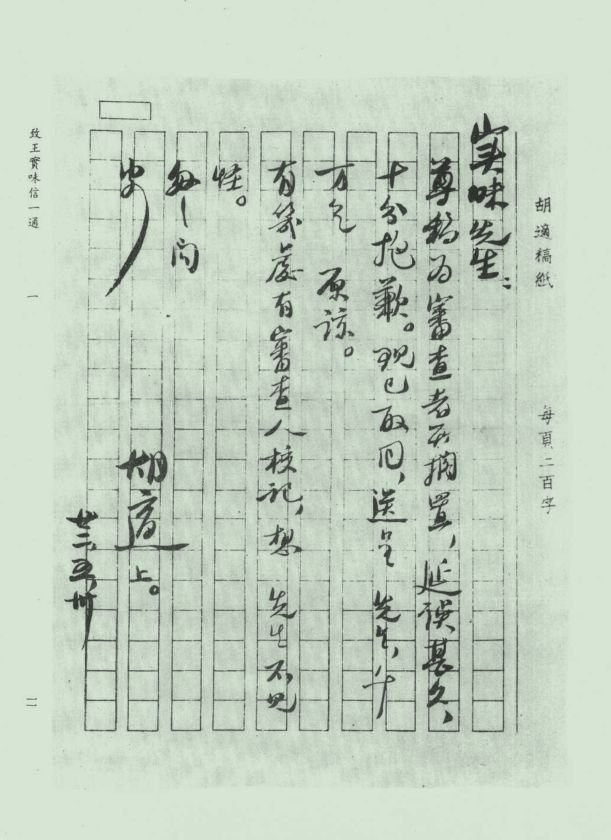 胡適稿紙
每頁二百字
实味先生：
尊稿为審查者所擱置，延误甚久，
十分抱歉。現已取回，送呈 先生，千
万乞 原諒。
有幾處有審查人校記，想 先生不见
怪。
匆匆问
安
胡適上。
廿三，五，卅
致王實味信一通
一
一一